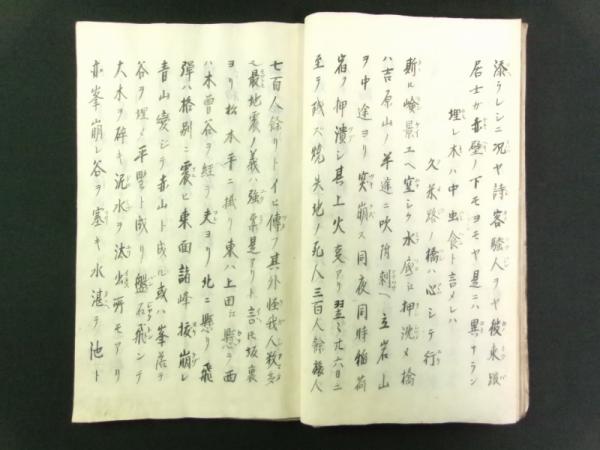 添ラレシニ況ヤ詩客騒人ヲヤ彼東坡
居士ガ赤壁ノ下モヨモヤ是ニハ異サラン
埋レ木ハ中虫食ト言メレハ
久米路ノ橋ハ心シテ行
斯ル嶮景エヘ空シク水底ニ押沈メ橋
ハ吉原山ノ半達ニ吹附剰ヘ立岩山
ヲ中途ヨリ突崩ス同夜同時稲荷
宿ヲ押潰シ其上火変アリ翌ル廿六日ニ
至テ残ズ焼失地ノ死人三百人餘旅人
七百人餘リトイヒ傳フ其外怪我人数多
最地震ノ義ハ強柔是アリト言ヒ坂裏
ヨリ松本手ニ掛リ東ハ上田ニ懸ラ西
ハ木曽谷ヲ経テ夫ヨリ北ニ懸リ飛
弾ハ格別ニ震ヒ東面諸峰抜崩レ
青山変シテ赤山ト成ル或ハ峯落テ
谷ヲ埋メ平野ト成リ盤石飛ンテ
大木ヲ砕キ泥水ヲ汰出所モアリ
亦峯崩レ谷ヲ塞キ水湛テ池ト